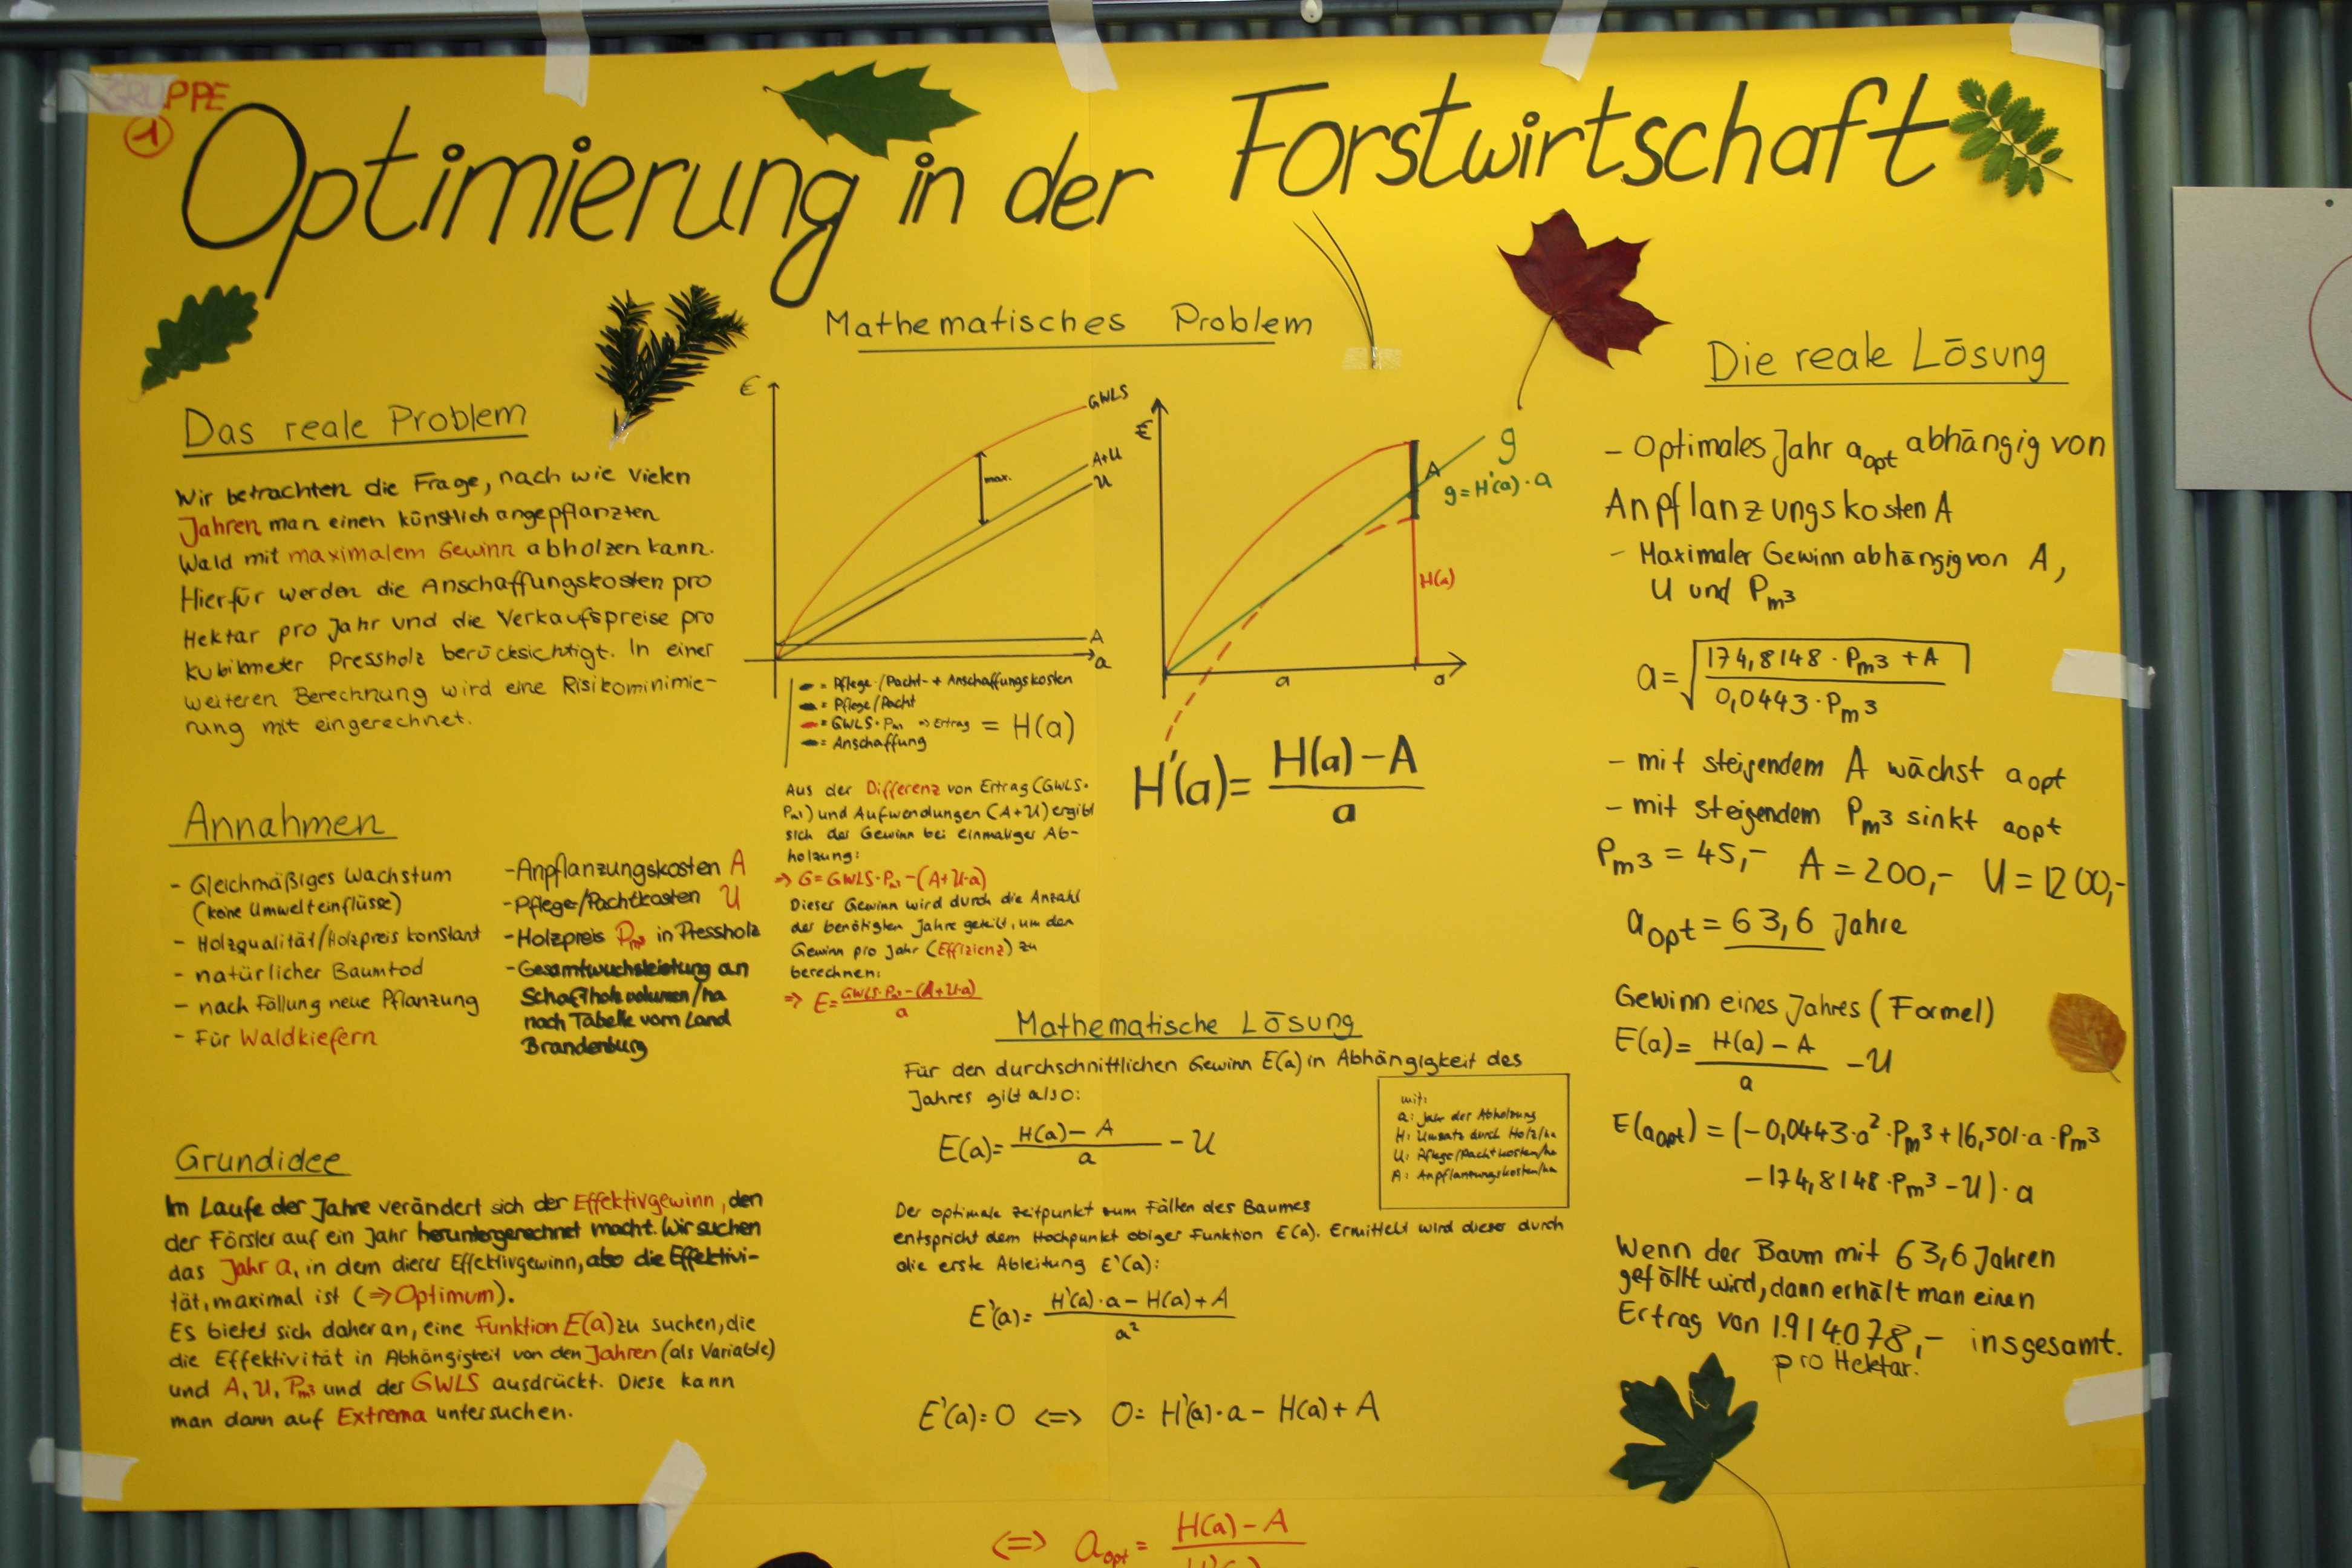 GRUPPE
1
Optimierung in der Forstwirtschaft
Das reale Problem
Wir betrachten die Frage, nach wie vielen
Jahren man einen künstlich angepflanzten
Wald mit maximalem Gewinn abholzen kann.
Hierfür werden die Anschaffungskosten pro
Hektar pro Jahr und die Verkaufspreise pro
Kubikmeter Pressholz berücksichtigt. In einer
weiteren Berechnung wird eine Risikominimie-
rung mit eingerechnet.
Annahmen
- Gleichmäßiges Wachstum
(keine Umwelteinflüsse)
- Holzqualität/Holzpreis konstant
- natürlicher Baumtod
- nach Fällung neue Pflanzung
- Für Waldkiefern
- Anpflanzungskosten A
- Pflege/Pachtkosten U
- Holzpreis Pm³ in Pressholz
- Gesamtwuchsleistung an
Schaftholzvolumen/ha
nach Tabelle vom Land
Brandenburg
Grundidee
Im Laufe der Jahre verändert sich der Effektivgewinn, den
der Förster auf ein Jahr heruntergerechnet macht. Wir suchen
das Jahr a, in dem dieser Effektivgewinn, also die Effektivi-
tät, maximal ist (⇒ Optimum).
Es bietet sich daher an, eine Funktion E(a) zu suchen, die
die Effektivität in Abhängigkeit von den Jahren (als Variable)
und A, U, Pm³ und der GWLS ausdrückt. Diese kann
man dann auf Extrema untersuchen.
Mathematisches Problem
€
GWLS
A+U
U
max.
A
a
= Pflege-/Pacht- + Anschaffungskosten
= Pflege/Pacht
= GWLS · Pm³ ⇒ Ertrag = H(a)
= Anschaffung
€
g
A
g = H'(a) · a
H(a)
a
a
H'(a) = (H(a) - A) / a
Aus der Differenz von Ertrag (GWLS ·
Pm³) und Aufwendungen (A+U) ergibt
sich der Gewinn bei einmaliger Ab-
holzung:
⇒ G = GWLS · Pm³ - (A + U · a)
Dieser Gewinn wird durch die Anzahl
der benötigten Jahre geteilt, um den
Gewinn pro Jahr (Effizienz) zu
berechnen:
⇒ E = (GWLS · Pm³ - (A + U · a)) / a
Mathematische Lösung
Für den durchschnittlichen Gewinn E(a) in Abhängigkeit des
Jahres gilt also:
E(a) = (H(a) - A) / a - U
mit:
a: Jahr der Abholzung
H: Umsatz durch Holz/ha
U: Pflege/Pachtkosten/ha
A: Anpflanzungskosten/ha
Der optimale Zeitpunkt zum Fällen des Baumes
entspricht dem Hochpunkt obiger Funktion E(a). Ermittelt wird dieser durch
die erste Ableitung E'(a):
E'(a) = (H'(a) · a - H(a) + A) / a²
E'(a) = 0 <=> 0 = H'(a) · a - H(a) + A
<=> aopt = H(a) - A
Die reale Lösung
- Optimales Jahr aopt abhängig von
Anpflanzungskosten A
- Maximaler Gewinn abhängig von A,
U und Pm³
a = √((174,8148 · Pm³ + A) / (0,0443 · Pm³))
- mit steigendem A wächst aopt
- mit steigendem Pm³ sinkt aopt
Pm³ = 45,- A = 200,- U = 1200,-
aopt = 63,6 Jahre
Gewinn eines Jahres (Formel)
E(a) = (H(a) - A) / a - U
E(aopt) = (-0,0443 · a² · Pm³ + 16,501 · a · Pm³
- 174,8148 · Pm³ - U) · a
Wenn der Baum mit 63,6 Jahren
gefällt wird, dann erhält man einen
Ertrag von 1.914.078,- insgesamt.
pro Hektar.